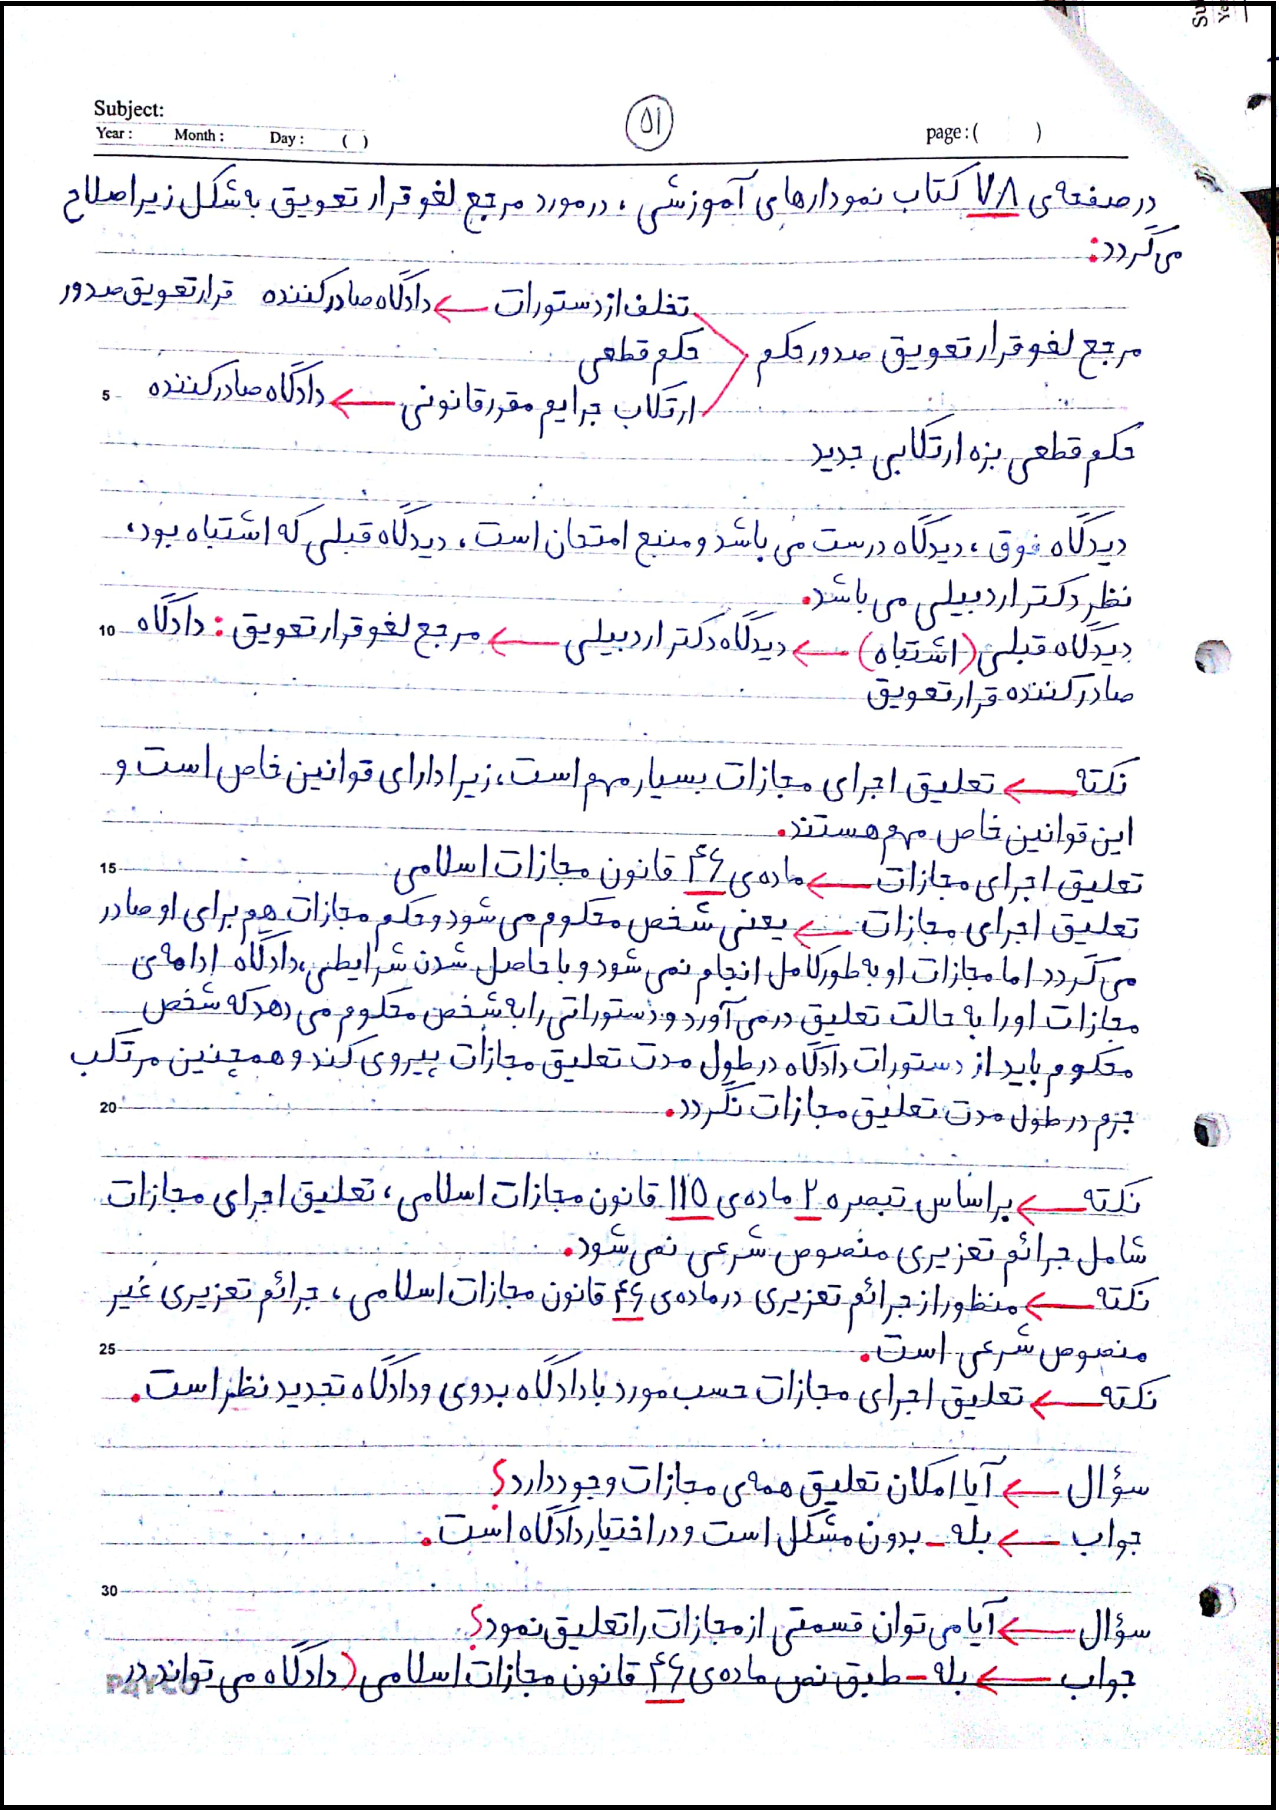 Su
Ye
Subject:
Year: Month: Day: ( )
۵۱
page:( )
در صفحه‌ی ۷۸ کتاب نمودارهای آموزشی، در مورد مرجع لغو قرار تعویق به شکل زیر اصلاح
می‌گردد:
تخلف از دستورات ← دادگاه صادرکننده قرار تعویق صدور
مرجع لغو قرار تعویق صدور حکم
حکم قطعی
5 ارتکاب جرایم مقرر قانونی ← دادگاه صادرکننده
حکم قطعی بزه ارتکابی جدید
دیدگاه فوق، دیدگاه درست می باشد و منبع امتحان است، دیدگاه قبلی که اشتباه بود،
نظر دکتر اردبیلی می باشد.
10 دیدگاه قبلی (اشتباه) ← دیدگاه دکتر اردبیلی ← مرجع لغو قرار تعویق: دادگاه
صادرکننده قرار تعویق
نکته ← تعلیق اجرای مجازات بسیار مهم است، زیرا دارای قوانین خاص است و
این قوانین خاص مهم هستند.
15 تعلیق اجرای مجازات ← ماده‌ی ۴۶ قانون مجازات اسلامی
تعلیق اجرای مجازات ← یعنی شخص محکوم می شود و حکم مجازات هم برای او صادر
می‌گردد اما مجازات او به طور کامل انجام نمی شود و با حاصل شدن شرایطی، دادگاه ادامه‌ی
مجازات او را به حالت تعلیق در می آورد و دستوراتی را به شخص محکوم می دهد که شخص
محکوم باید از دستورات دادگاه در طول مدت تعلیق مجازات پیروی کند و همچنین مرتکب
20 جرم در طول مدت تعلیق مجازات نگردد.
نکته ← براساس تبصره ۲ ماده‌ی ۱۱۵ قانون مجازات اسلامی، تعلیق اجرای مجازات
شامل جرائم تعزیری منصوص شرعی نمی شود.
نکته ← منظور از جرائم تعزیری در ماده‌ی ۴۶ قانون مجازات اسلامی، جرائم تعزیری غیر
25 منصوص شرعی است.
نکته ← تعلیق اجرای مجازات حسب مورد با دادگاه بدوی و دادگاه تجدید نظر است.
سؤال ← آیا امکان تعلیق همه‌ی مجازات وجود دارد؟
جواب ← بله - بدون مشکل است و در اختیار دادگاه است.
30
سؤال ← آیا می توان قسمتی از مجازات را تعلیق نمود؟
جواب ← بله - طبق نص ماده‌ی ۴۶ قانون مجازات اسلامی (دادگاه می تواند در
PAPCO